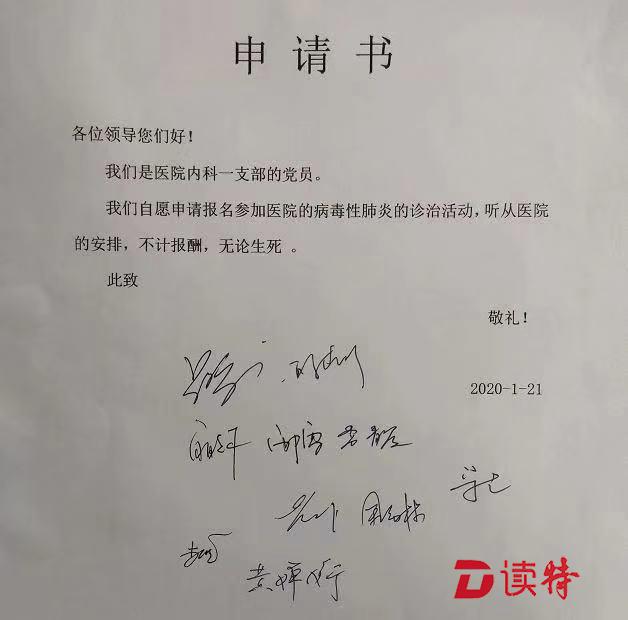 申请书
各位领导您们好！
我们是医院内科一支部的党员。
我们自愿申请报名参加医院的病毒性肺炎的诊治活动，听从医院
的安排，不计报酬，无论生死 。
此致
敬礼！
2020-1-21
读特